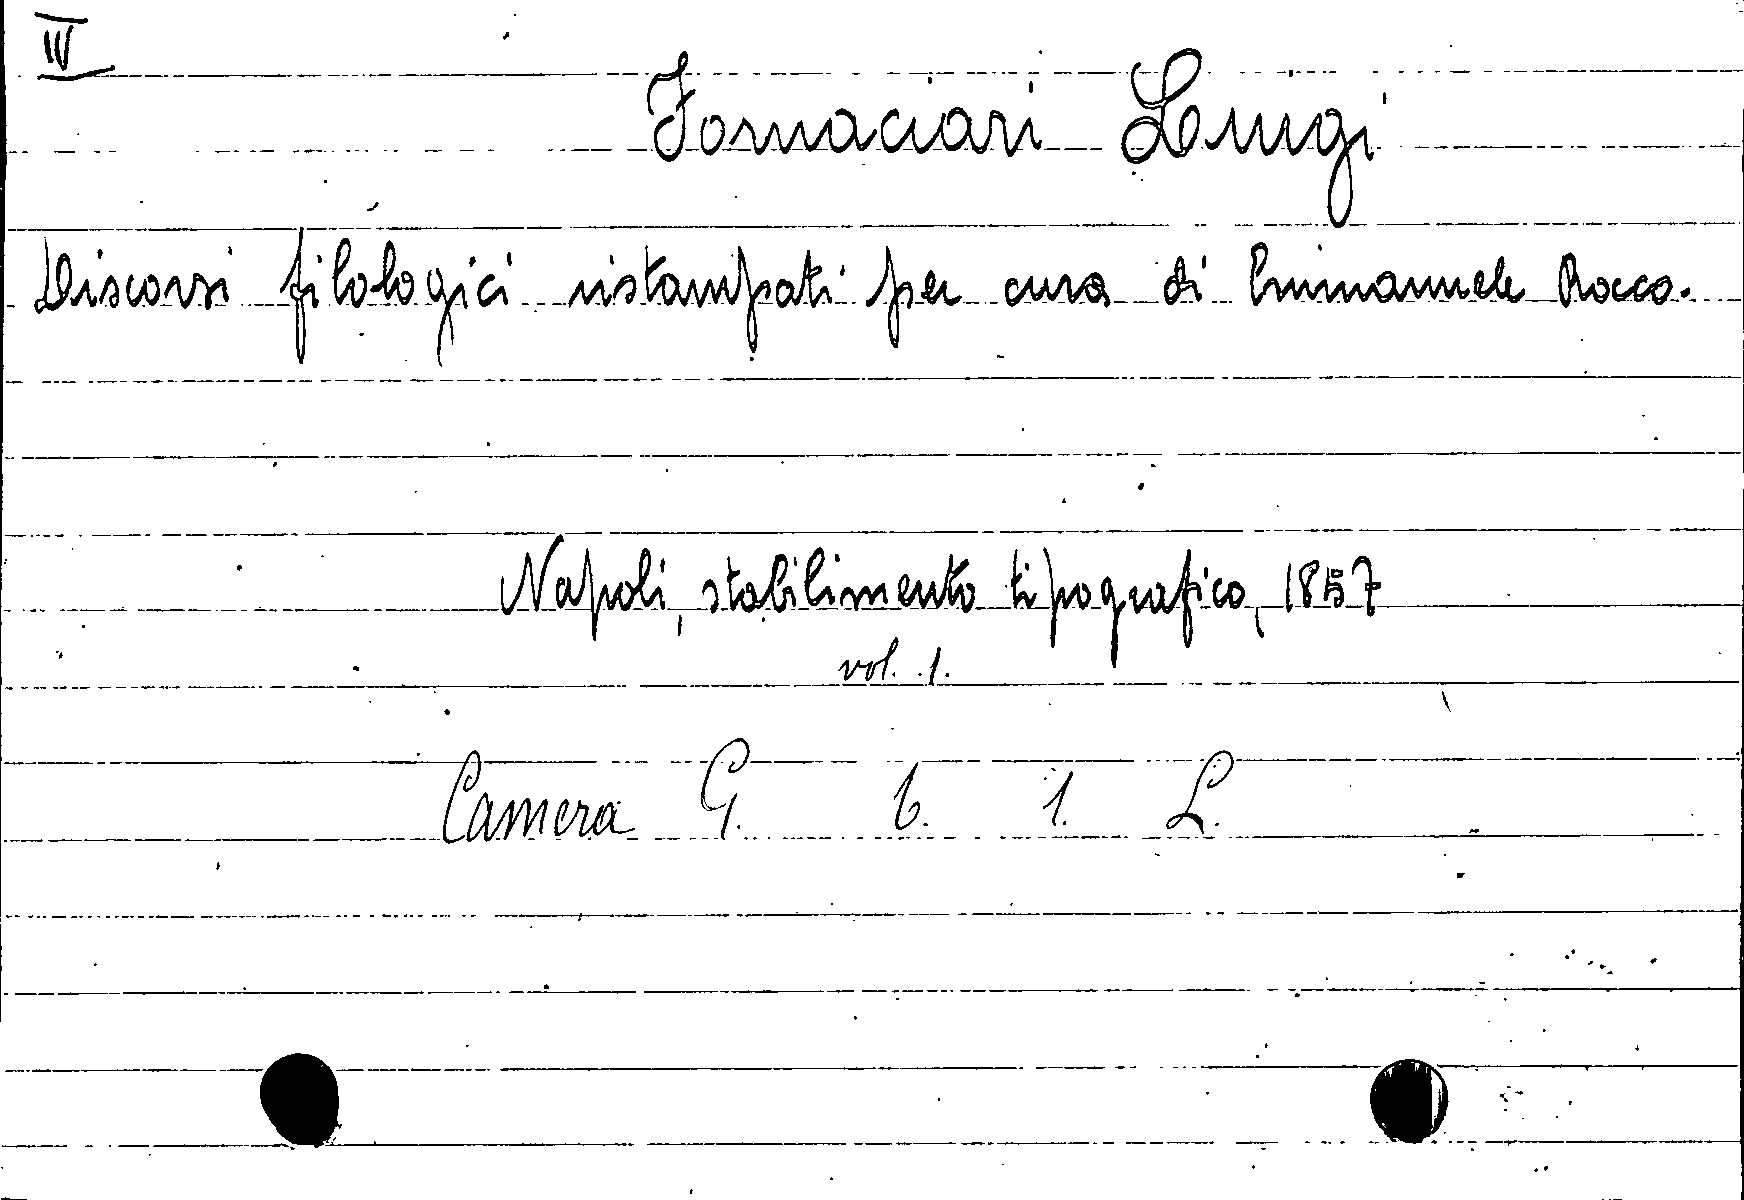 IV
Fornaciari Luigi
Discorsi filologici ristampati per cura di Emmanuele Rocco.
Napoli, stabilimento tipografico, 1857
vol. 1.
Camera G. 6. 1. L.